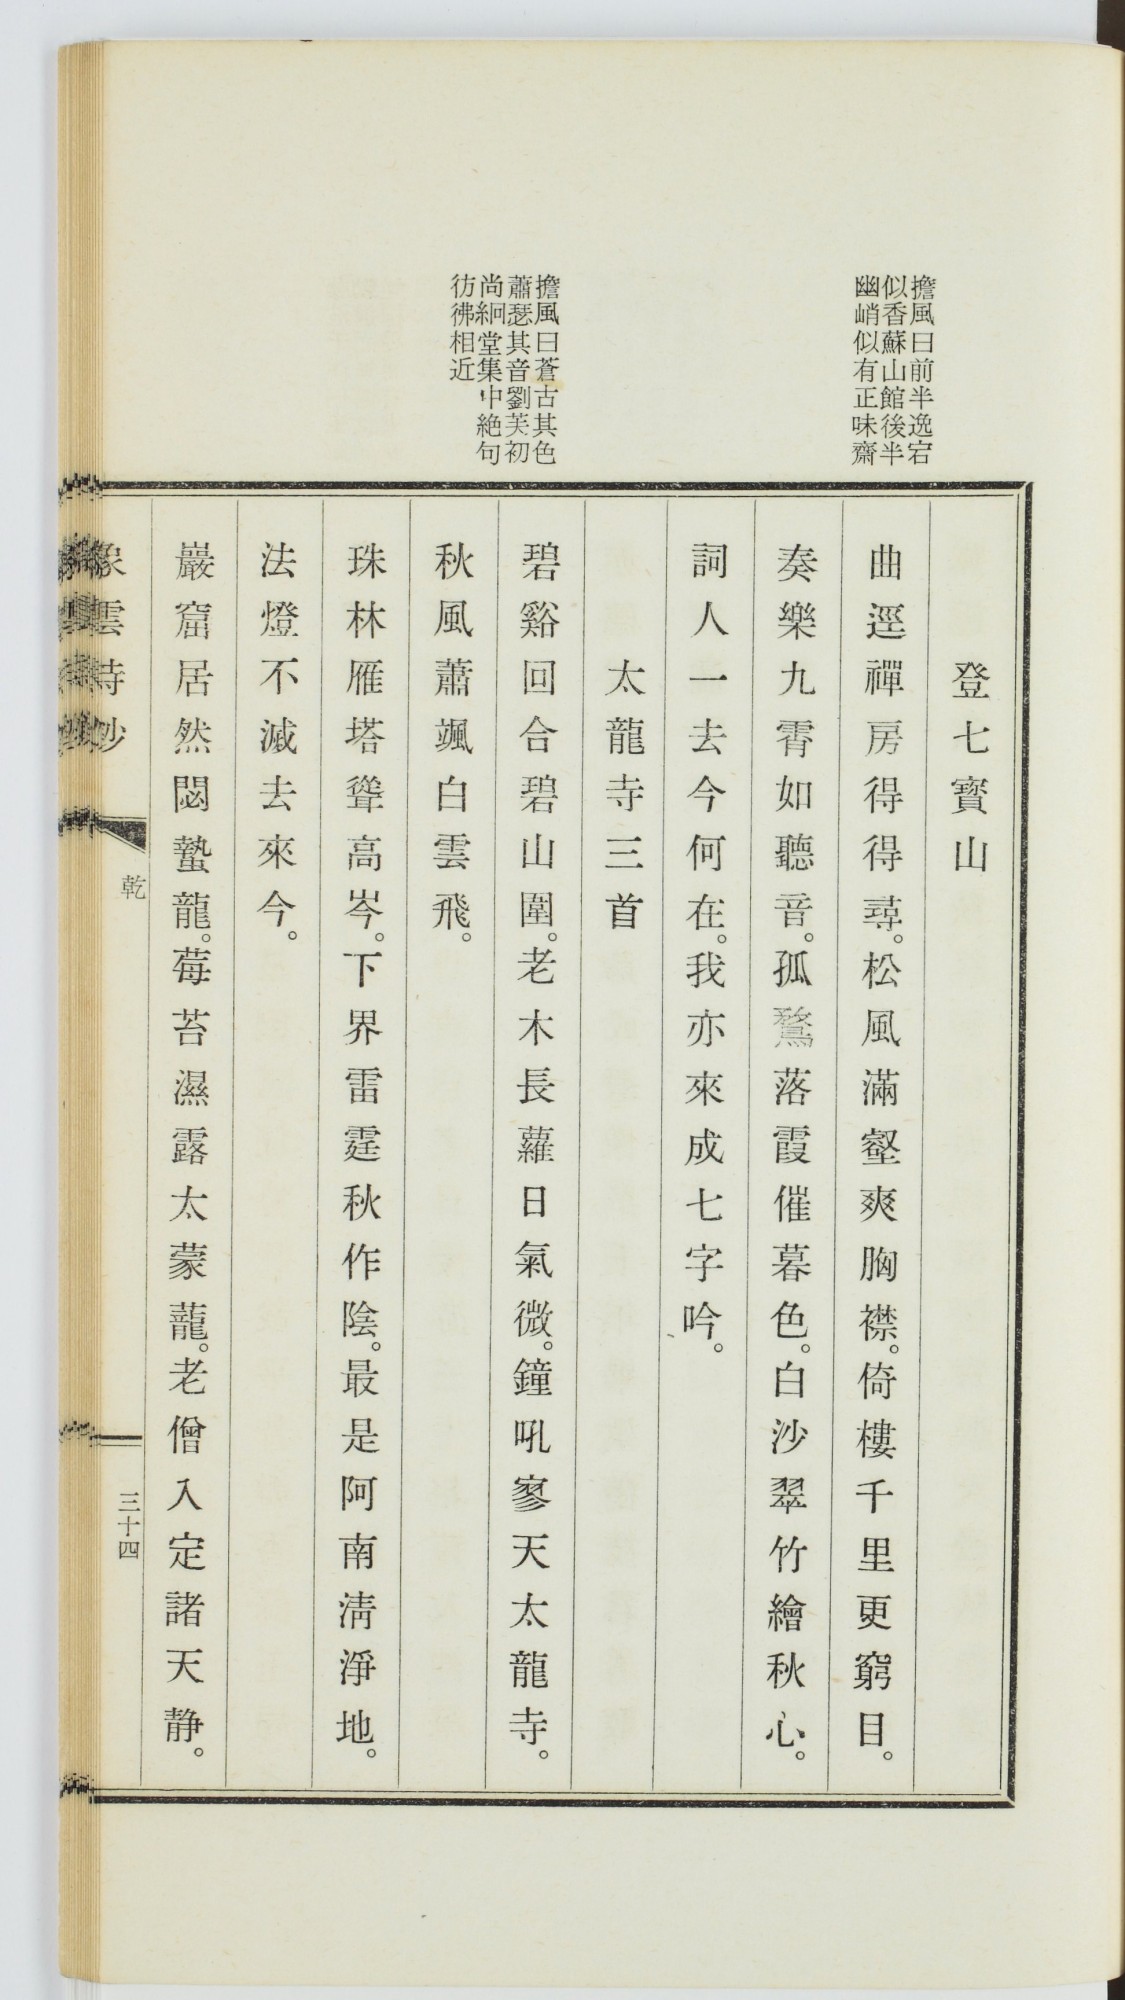 擔風曰前半逸宕
似香蘇山館後半
幽峭似有正味齋
擔風曰蒼古其色
蕭瑟其音劉芙初
尚絅堂集中絶句
彷彿相近
登七寶山
曲逕禪房得得尋。松風滿壑爽胸襟。倚樓千里更窮目。
奏樂九霄如聽音。孤鶩落霞催暮色。白沙翠竹繪秋心。
詞人一去今何在。我亦來成七字吟。
太龍寺三首
碧谿回合碧山圍。老木長蘿日氣微。鐘吼寥天太龍寺。
秋風蕭颯白雲飛。
珠林雁塔聳高岑。下界雷霆秋作陰。最是阿南淸淨地。
法燈不滅去來今。
巖窟居然閟蟄龍。莓苔濕露太蒙蘢。老僧入定諸天静。
象雲詩鈔
乾
三十四